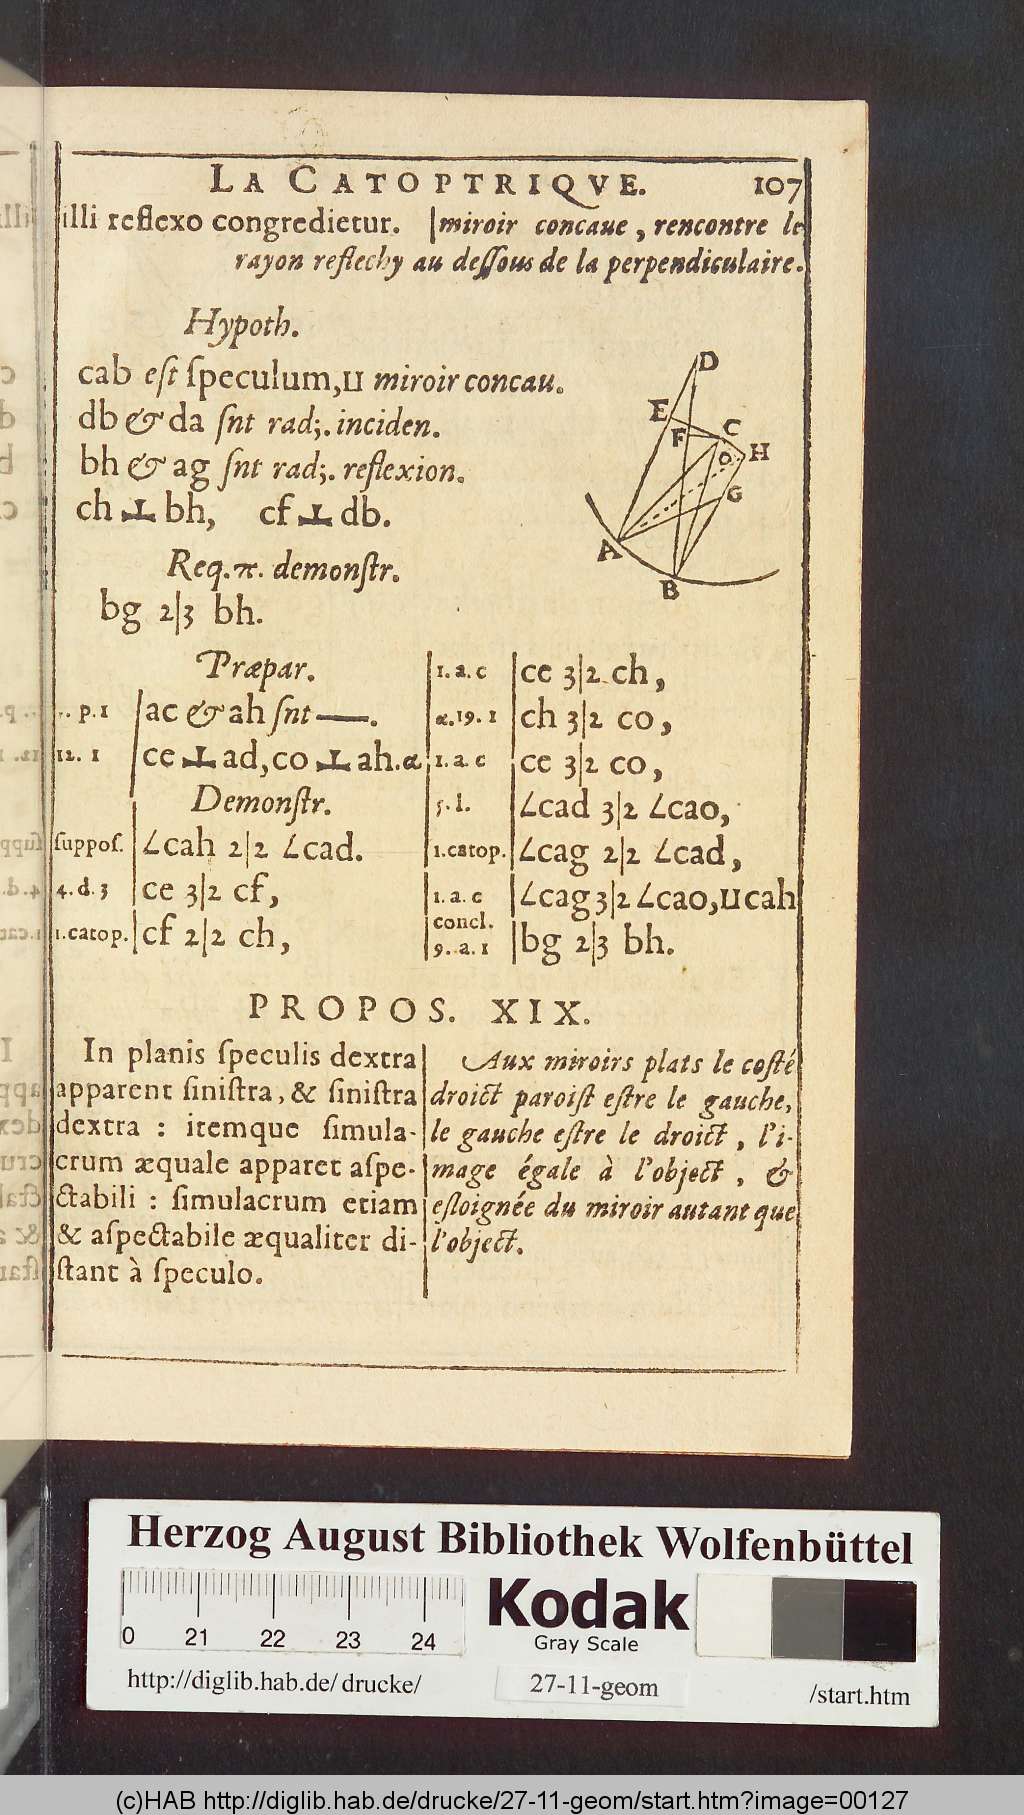 LA CATOPTRIQVE. 107
illi reflexo congredietur. | miroir concaue, rencontre le
rayon reflechy au deſſous de la perpendiculaire.
Hypoth.
cab eſt ſpeculum, ıı miroir concau.
db & da ſnt rad;. inciden.
bh & ag ſnt rad;. reflexion.
ch ⊥ bh, cf ⊥ db.
Req. π. demonſtr.
bg 2|3 bh.
D
E
C
F
O
H
G
A
B
Præpar.
p. 1 | ac & ah ſnt —.
12. 1 | ce ⊥ ad, co ⊥ ah. α
Demonſtr.
ſuppoſ. | ∠cah 2|2 ∠cad.
4. d. 3 | ce 3|2 cf,
1. catop. | cf 2|2 ch,
1. a. c | ce 3|2 ch,
α. 19. 1 | ch 3|2 co,
1. a. c | ce 3|2 co,
5. l. | ∠cad 3|2 ∠cao,
1. catop. | ∠cag 2|2 ∠cad,
1. a. c | ∠cag 3|2 ∠cao, ıı cah
concl.
9. a. 1 | bg 2|3 bh.
PROPOS. XIX.
In planis ſpeculis dextra
apparent ſiniſtra, & ſiniſtra
dextra : itemque ſimula-
crum æquale apparet aſpe-
ctabili : ſimulacrum etiam
& aſpectabile æqualiter di-
ſtant à ſpeculo.
Aux miroirs plats le coſté
droict paroiſt eſtre le gauche,
le gauche eſtre le droict, l'i-
mage égale à l'object, &
eſloignée du miroir autant que
l'object.
Herzog August Bibliothek Wolfenbüttel
0 21 22 23 24
Kodak
Gray Scale
http://diglib.hab.de/drucke/ 27-11-geom /start.htm
(c)HAB http://diglib.hab.de/drucke/27-11-geom/start.htm?image=00127